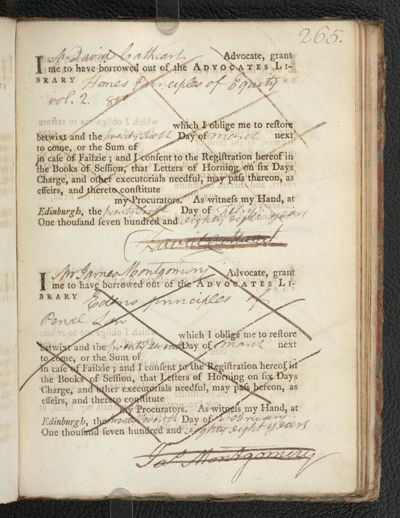 265.
I Mr David Cathcart Advocate, grant
me to have borrowed out of the ADVOCATES LI-
BRARY Homes Principles of Equity
vol. 2. 8vo
which I oblige me to reſtore
betwixt and the Day of March next
to come, or the Sum of
in caſe of Failzie; and I conſent to the Regiſtration hereof in
the Books of Seſſion, that Letters of Horning on ſix Days
Charge, and other executorials needful, may paſs thereon, as
effeirs, and thereto conſtitute
my Procurators. As witneſs my Hand, at
Edinburgh, the Day of
One thouſand ſeven hundred and eighty eight years
David Cathcart
I Mr James Montgomery Advocate, grant
me to have borrowed out of the ADVOCATES LI-
BRARY Edens principles of
Penal Law
which I oblige me to reſtore
betwixt and the Day of March next
to come, or the Sum of
in caſe of Failzie; and I conſent to the Regiſtration hereof in
the Books of Seſſion, that Letters of Horning on ſix Days
Charge, and other executorials needful, may paſs hereon, as
effeirs, and thereto conſtitute
my Procurators. As witneſs my Hand, at
Edinburgh, the Day of February
One thouſand ſeven hundred and eighty eight years
Jas Montgomery